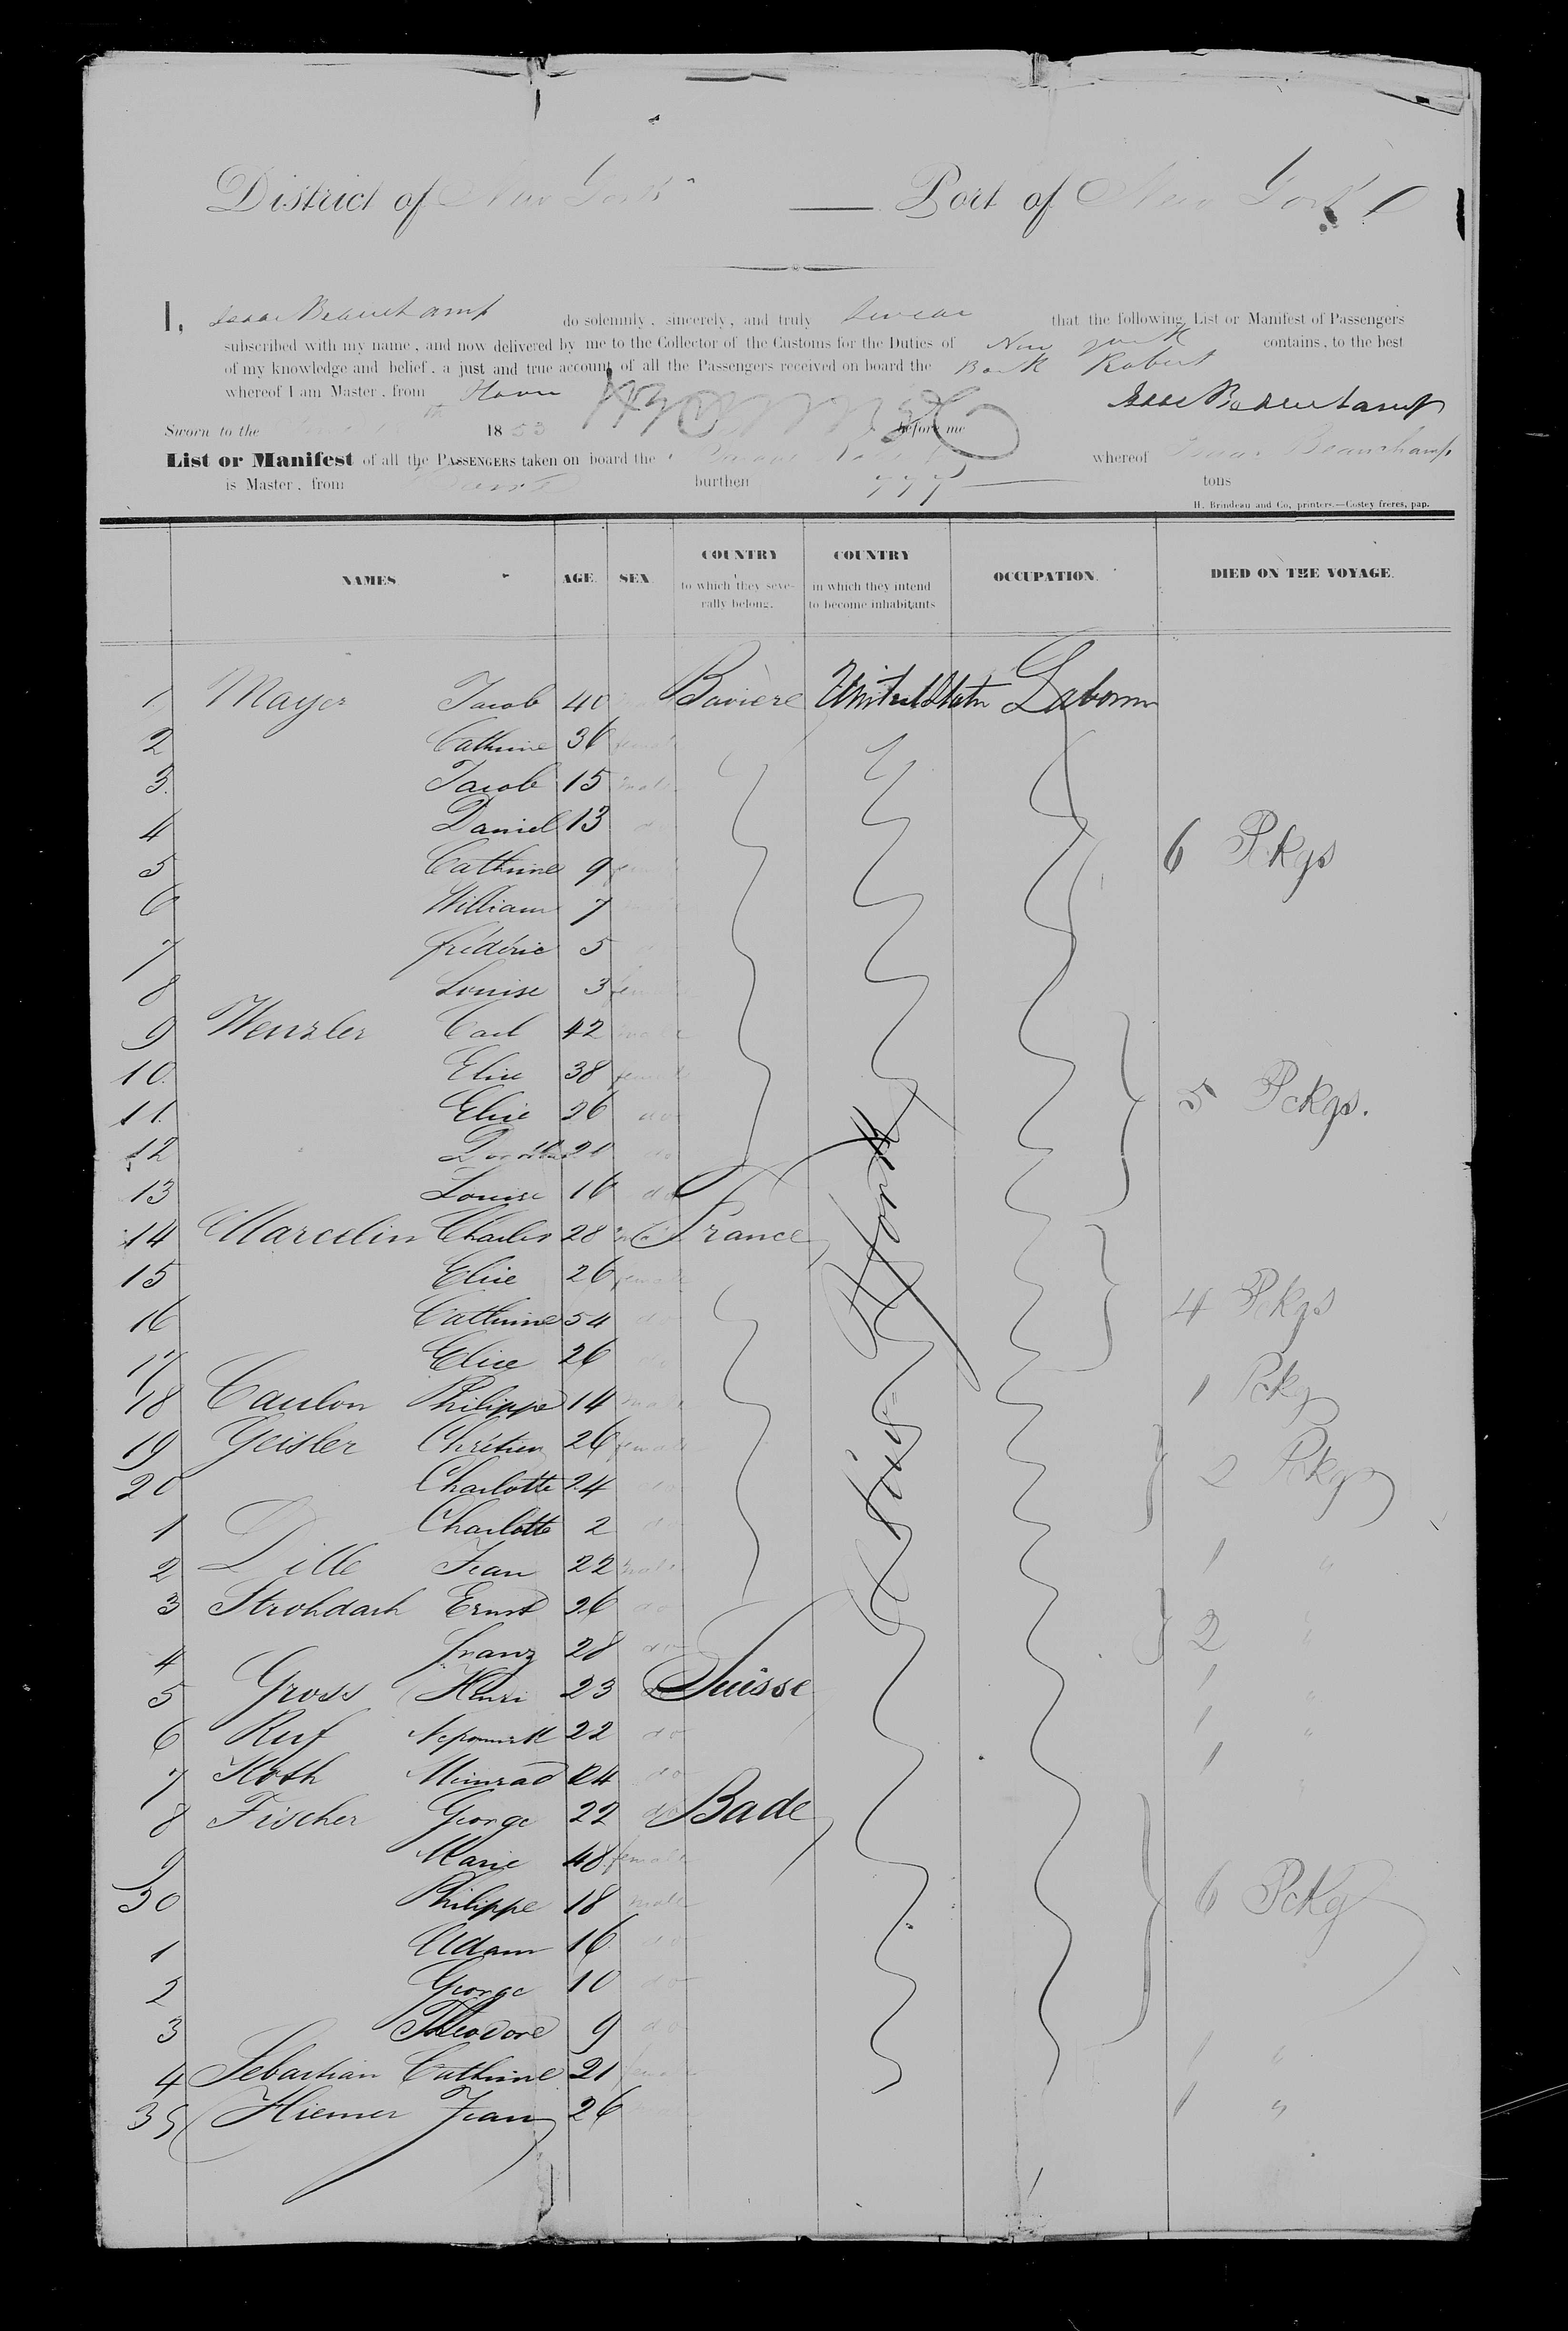 District of New York — Port of New York
I, Isaac Beauchamp do solemnly, sincerely, and truly swear that the following List or Manifest of Passengers
subscribed with my name, and now delivered by me to the Collector of the Customs for the Duties of New York contains, to the best
of my knowledge and belief, a just and true account of all the Passengers received on board the Bark Robert
whereof I am Master, from Havre Isaac Beauchamp
Sworn to the 1853 before me
List or Manifest of all the PASSENGERS taken on board the Robert whereof Isaac Beauchamp
is Master, from burthen 777 tons
H. Brindeau and Co, printers.—Costey freres, pap.
NAMES AGE. SEX COUNTRY to which they severally belong. COUNTRY in which they intend to become inhabitants OCCUPATION. DIED ON THE VOYAGE.
1 Mayer Jacob 40 Baviere United States Laborer
2 Cathrine 36 female
3 Jacob 15 male
4 Daniel 13 do 6 Pkgs
5 Cathrine 9
6 William 7
7 frédéric 5
8 Louise 3 female
9 Wenzler Carl 42 male
10 Elise 38 female
11 Elise 26 do 5 Pckgs.
12 20 do
13 Louise 16 do
14 Marcelin Charles 28 France
15 Elise 26 female
16 Cathrine 54 do 4 Pckgs
17 Elise 26 do
18 Caulon Philippe 14 male 1 Pckg
19 Geisler Chrétien 26 female
20 Charlotte 24 do 2 Pckgs
1 Charlotte 2 do
2 Dille Jean 22 male 1 "
3 Strohdach Ernst 26 do
4 franz 28 do 2 "
5 Gross Henri 23 do Suisse 1 "
6 Ruf 22 do 1 "
7 Roth Meinrad 24 do 1 "
8 Fischer George 22 do Bade
9 Marie 48 female
30 Philippe 18 male 6 Pckg
1 Adam 16 do
2 George 10 do
3 Théodore 9 do
4 Sebastian Cathrine 21 female 1 "
35 Hiemer Jean 26 1 "